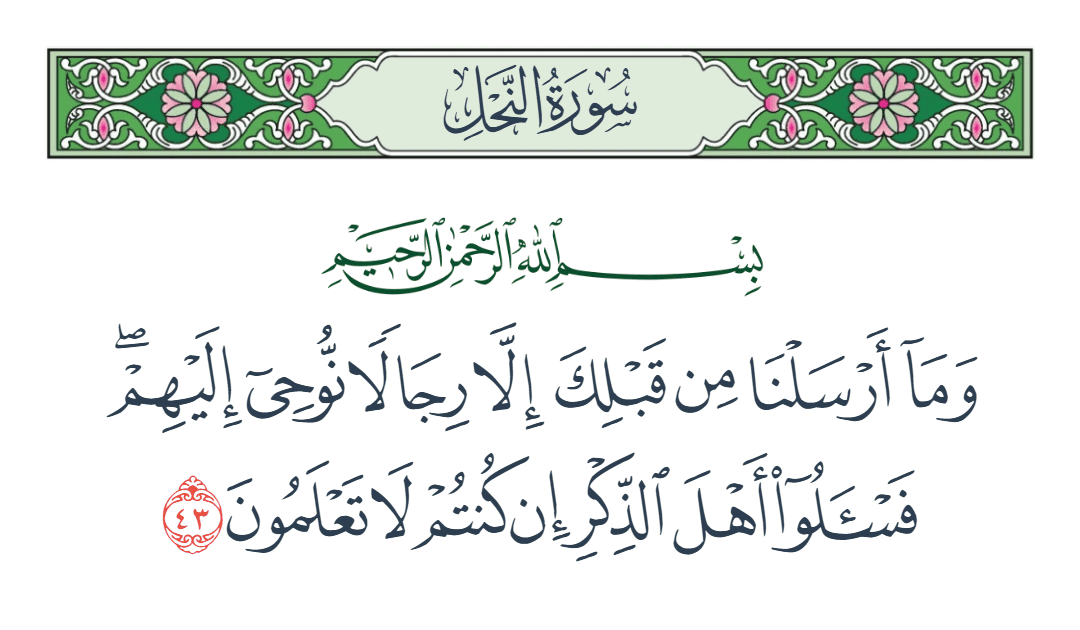 سُورَةُ النَّحْلِ
بِسْمِ ٱللَّهِ ٱلرَّحْمَٰنِ ٱلرَّحِيمِ
وَمَآ أَرْسَلْنَا مِن قَبْلِكَ إِلَّا رِجَالًا نُّوحِىٓ إِلَيْهِمْ ۖ
فَسْـَٔلُوٓا۟ أَهْلَ ٱلذِّكْرِ إِن كُنتُمْ لَا تَعْلَمُونَ ٤٣